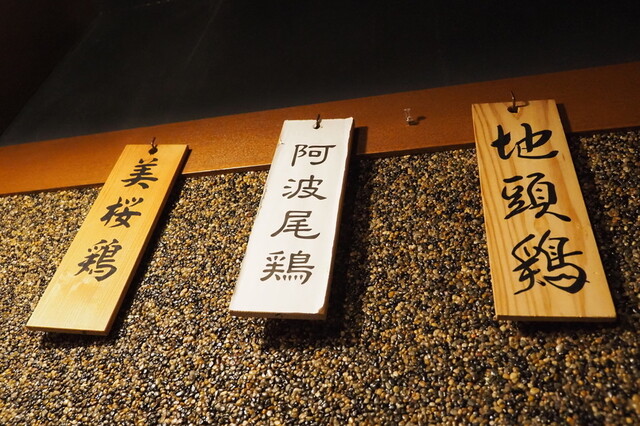 美桜鶏
阿波尾鶏
地頭鶏